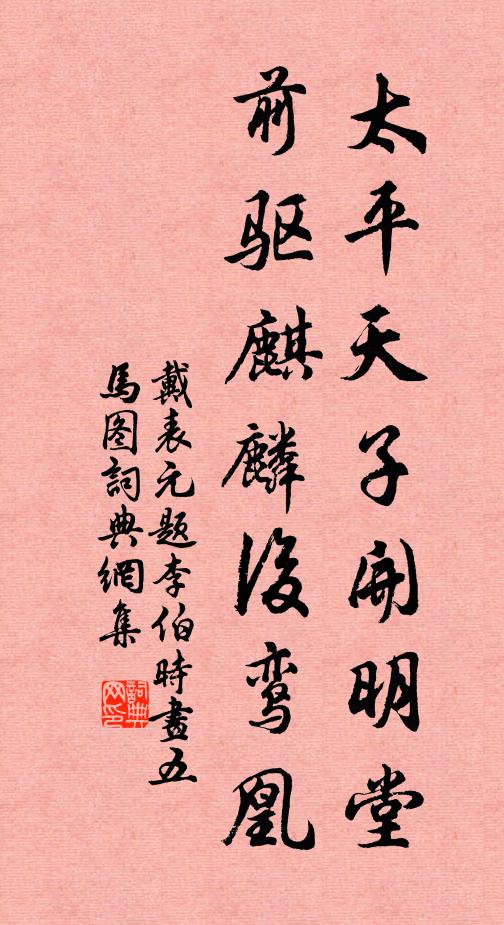 太平天子开明堂
前驱麒麟後鸾凰
戴表元题李伯時畫五
馬图詞典網集
詞典网印